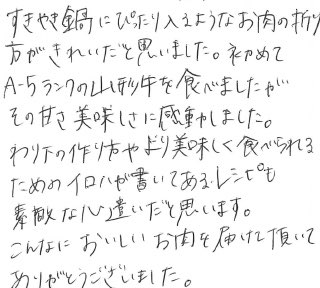 すきやき鍋にぴったり入るようなお肉の折り
方がきれいだと思いました。初めて
A-5ランクの山形牛を食べましたが
その甘さ美味しさに感動しました。
わり下の作り方やより美味しく食べられる
ためのイロハが書いてあるレシピも
素敵な心遣いだと思います。
こんなにおいしいお肉を届けて頂いて
ありがとうございました。